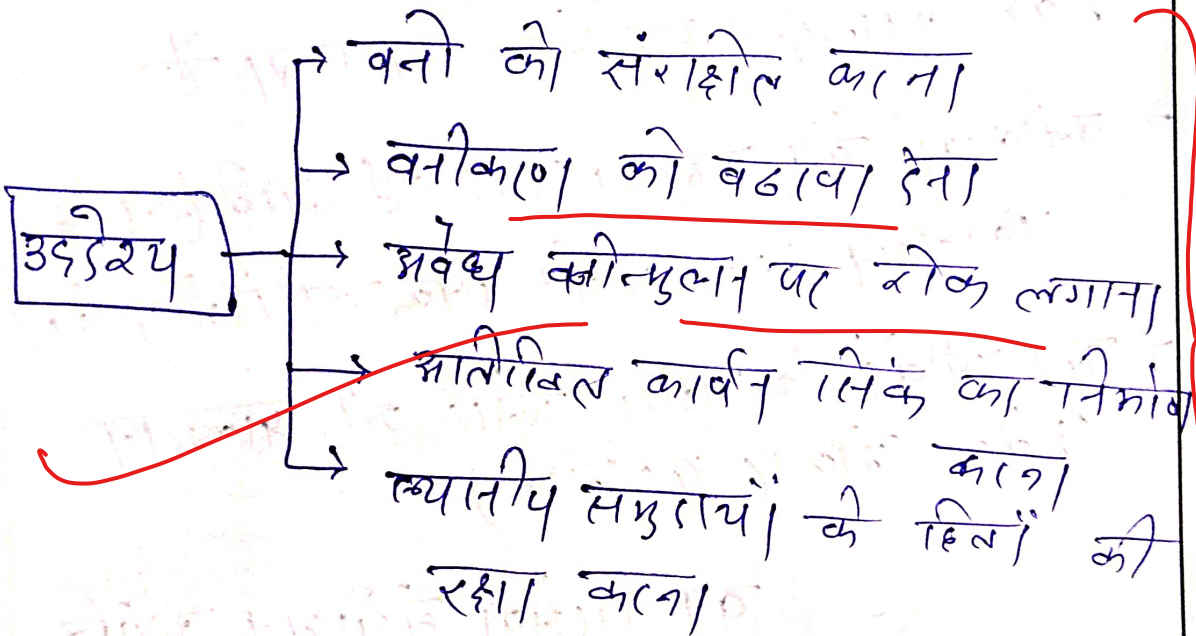 वनो को संरक्षित करना
वनीकरण को बढावा देना
उद्देश्य
अवैध वनोन्मुलन पर रोक लगाना
अतिरिक्त कार्बन सिंक का निर्माण
करना
स्थानीय समुदायों के हितों की
रक्षा करना